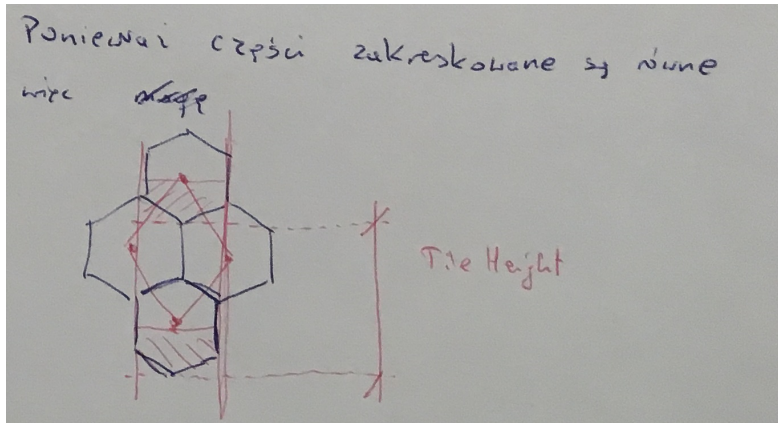 Ponieważ części zakreskowane są równe
więc
Tile Height